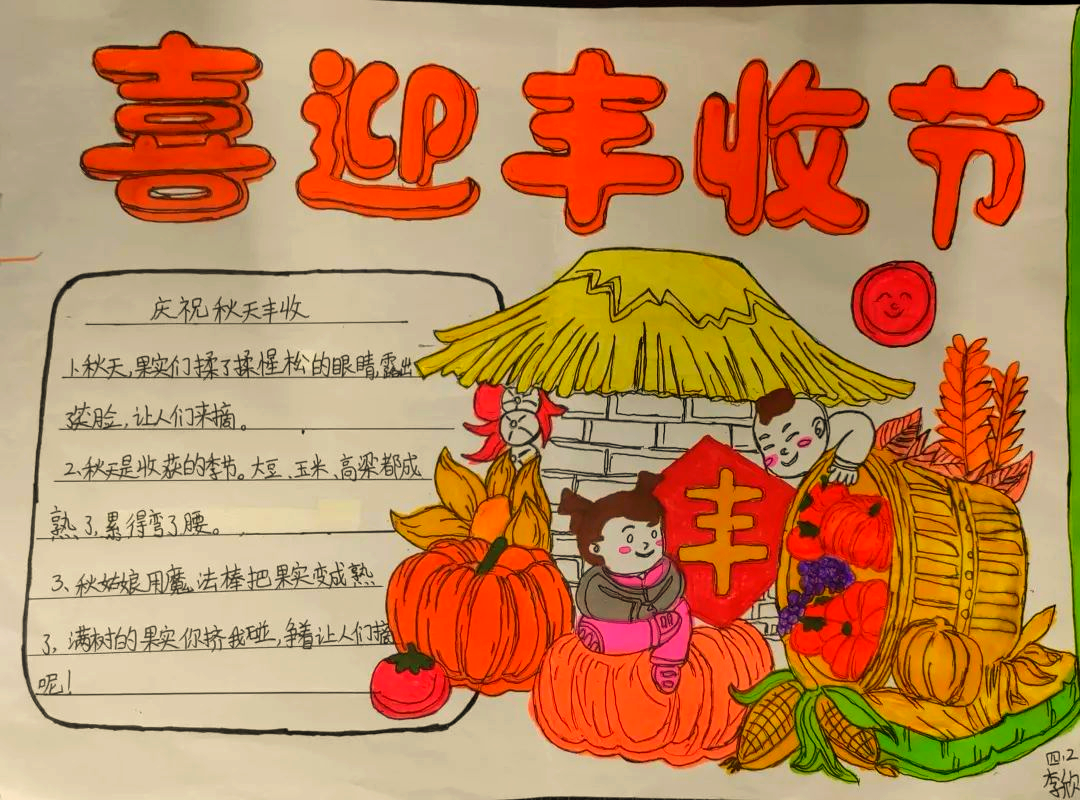 喜迎丰收节
庆祝秋天丰收
1、秋天,果实们揉了揉惺松的眼睛,露出
笑脸,让人们来摘。
2、秋天是收获的季节。大豆、玉米、高粱都成
熟了,累得弯了腰。
3、秋姑娘用魔法棒把果实变成熟
了,满树的果实你挤我碰,争着让人们摘
呢!
丰
四.2
李欣